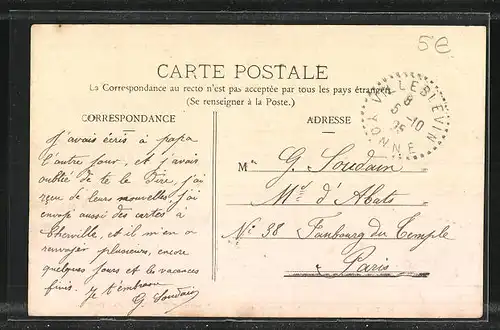 5€
CARTE POSTALE
La Correspondance au recto n'est pas acceptée par tous les pays étrangers
(Se renseigner à la Poste.)
CORRESPONDANCE
ADRESSE
VILLEBLEVIN
YONNE
8
5-10
05
J'avais écris à papa
l'autre jour, et j'avais
oublié de te le dire, j'ai
reçu de leurs nouvelles, j'ai
envoyé aussi des cartes à
Cherville, et il m'en a
renvoyer plusieurs, encore
quelques jours et les vacances
finis. Je t'embrasse
G. Soudain
M G. Soudain
Md d'Abats
No 38 Faubourg du Temple
Paris